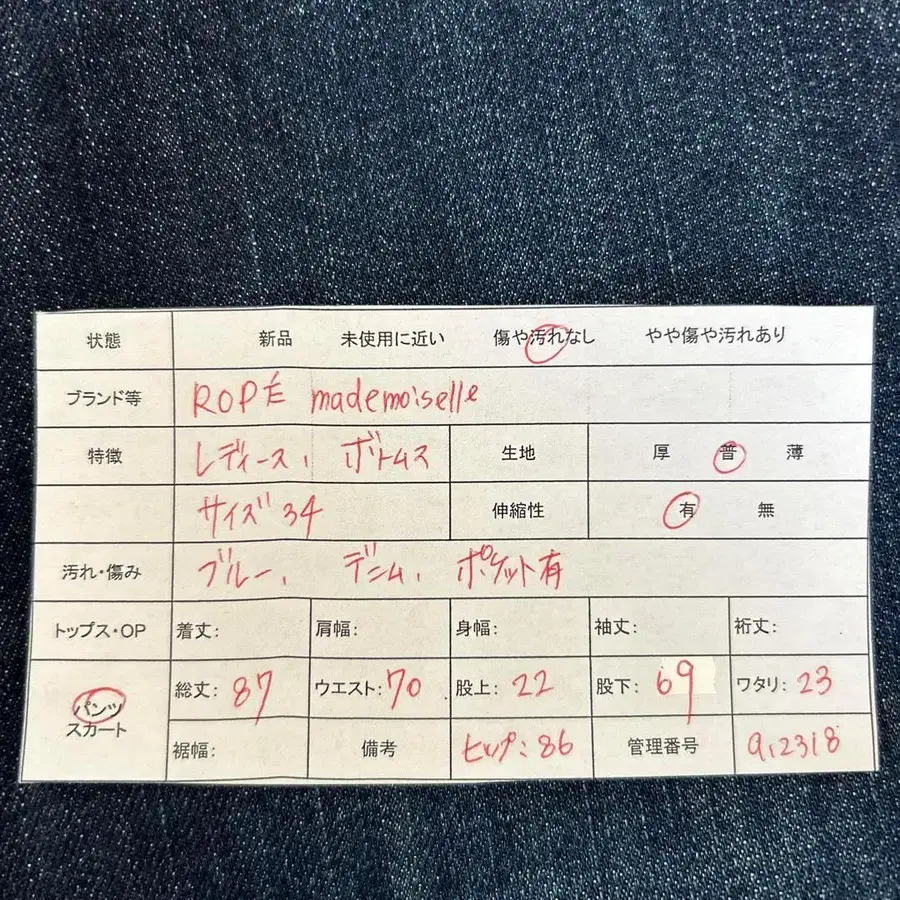 状態 新品 未使用に近い 傷や汚れなし やや傷や汚れあり
ブランド等 ROPÉ mademoiselle
特徴 レディース、ボトムス 生地 厚 普 薄
サイズ34 伸縮性 有 無
汚れ・傷み ブルー、デニム、ポケット有
トップス・OP 着丈: 肩幅: 身幅: 袖丈: 裄丈:
パンツ 総丈: 87 ウエスト: 70 股上: 22 股下: 69 ワタリ: 23
スカート
裾幅: 備考 ヒップ: 86 管理番号 912318